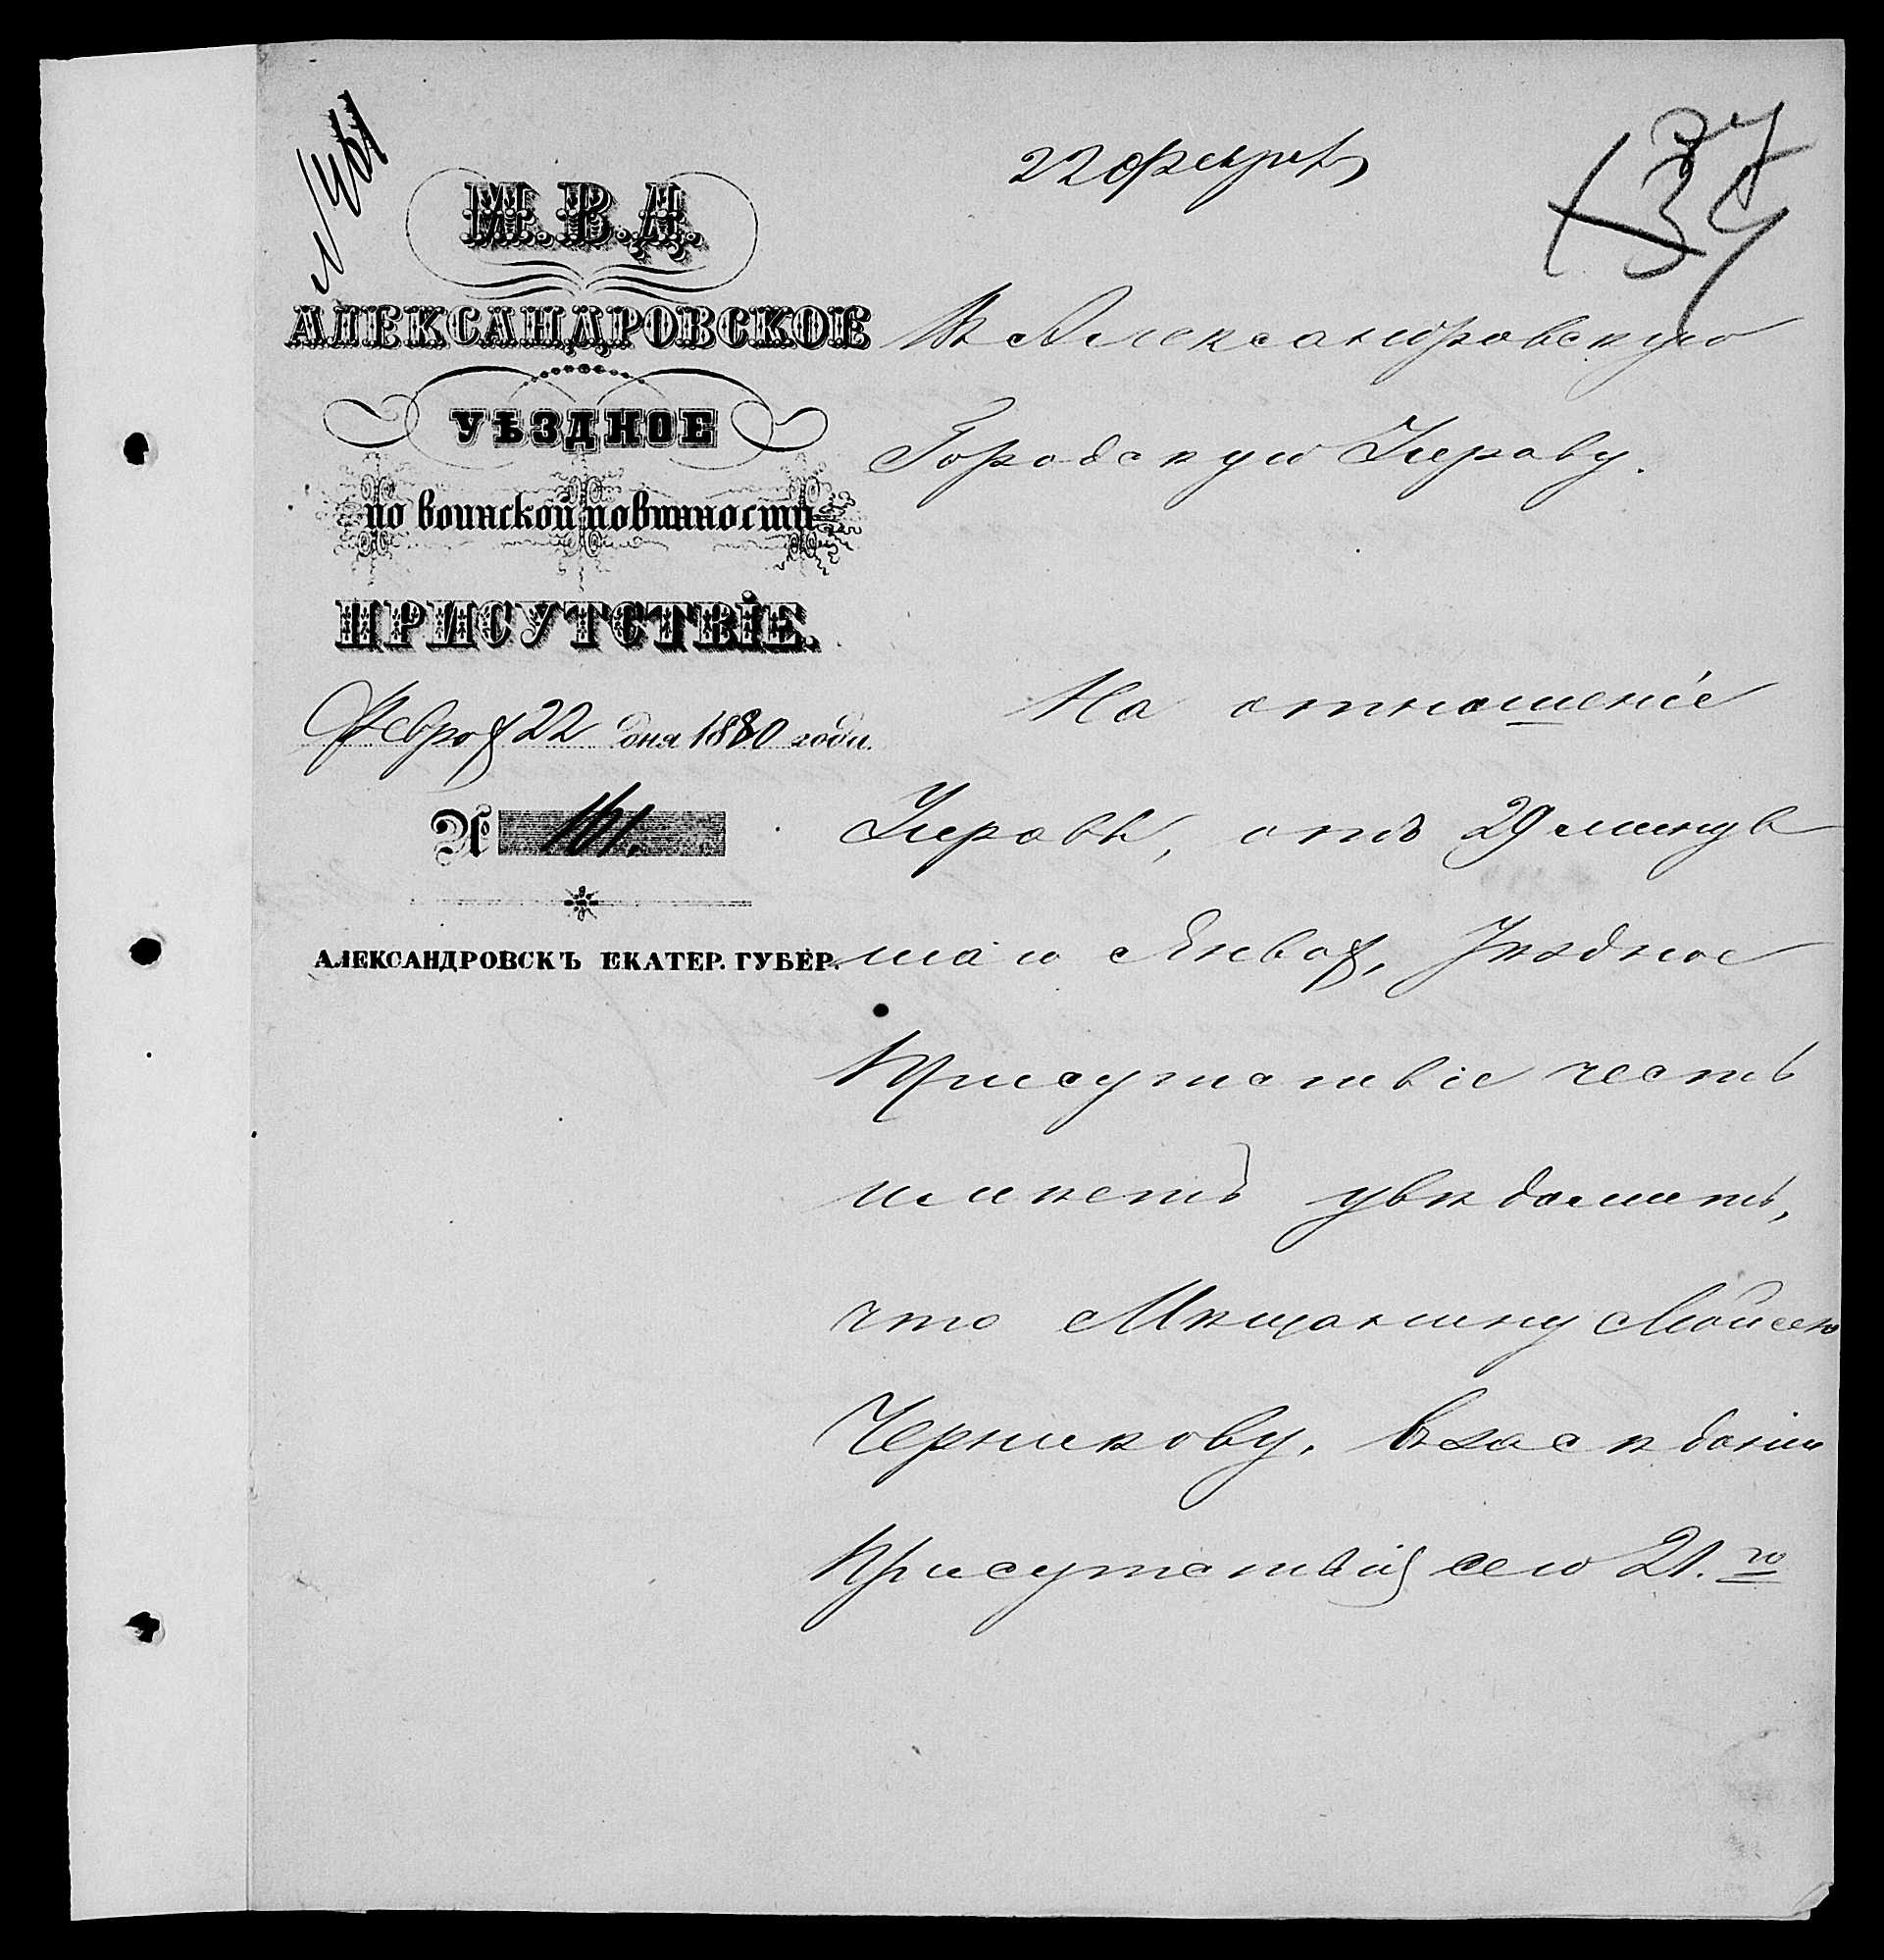 22 февраля
37
М.В.Д.
АЛЕКСАНДРОВСКОЕ
УѢЗДНОЕ
по воинской повинности
ПРИСУТСТВІЕ.
Февраля 22 дня 1880 года.
№ 161.
АЛЕКСАНДРОВСКЪ ЕКАТЕР. ГУБЕР.
Въ Александровскую
Городскую Управу.
На отношеніе
Управы, отъ 29 минув
шаго Января, Уѣздное
Присутствіе честь
имѣетъ увѣдомить,
что Мѣщанину Мойсею
Черникову, въ засѣданіи
Присутствія сего 21.го